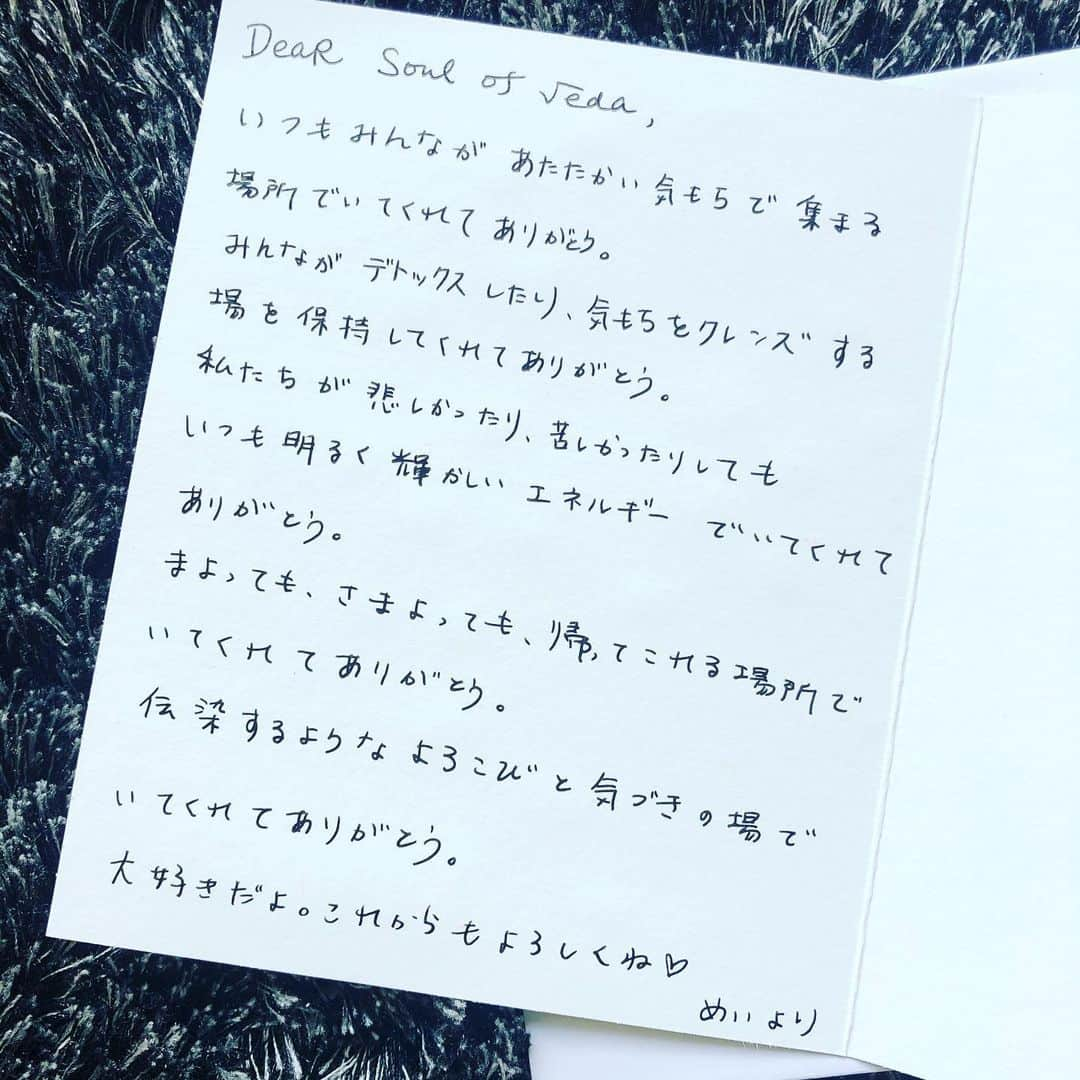 Dear Soul of Veda,
いつもみんなが あたたかい気もちで集まる
場所でいてくれて ありがとう。
みんなが デトックスしたり、気もちをクレンズする
場を保持してくれてありがとう。
私たちが悲しかったり、苦しかったりしても
いつも明るく輝かしい エネルギー でいてくれて
ありがとう。
まよっても、さまよっても、帰ってこれる場所で
いてくれてありがとう。
伝染するような よろこびと気づきの場で
いてくれてありがとう。
大好きだよ。これからもよろしくね♡
めいより